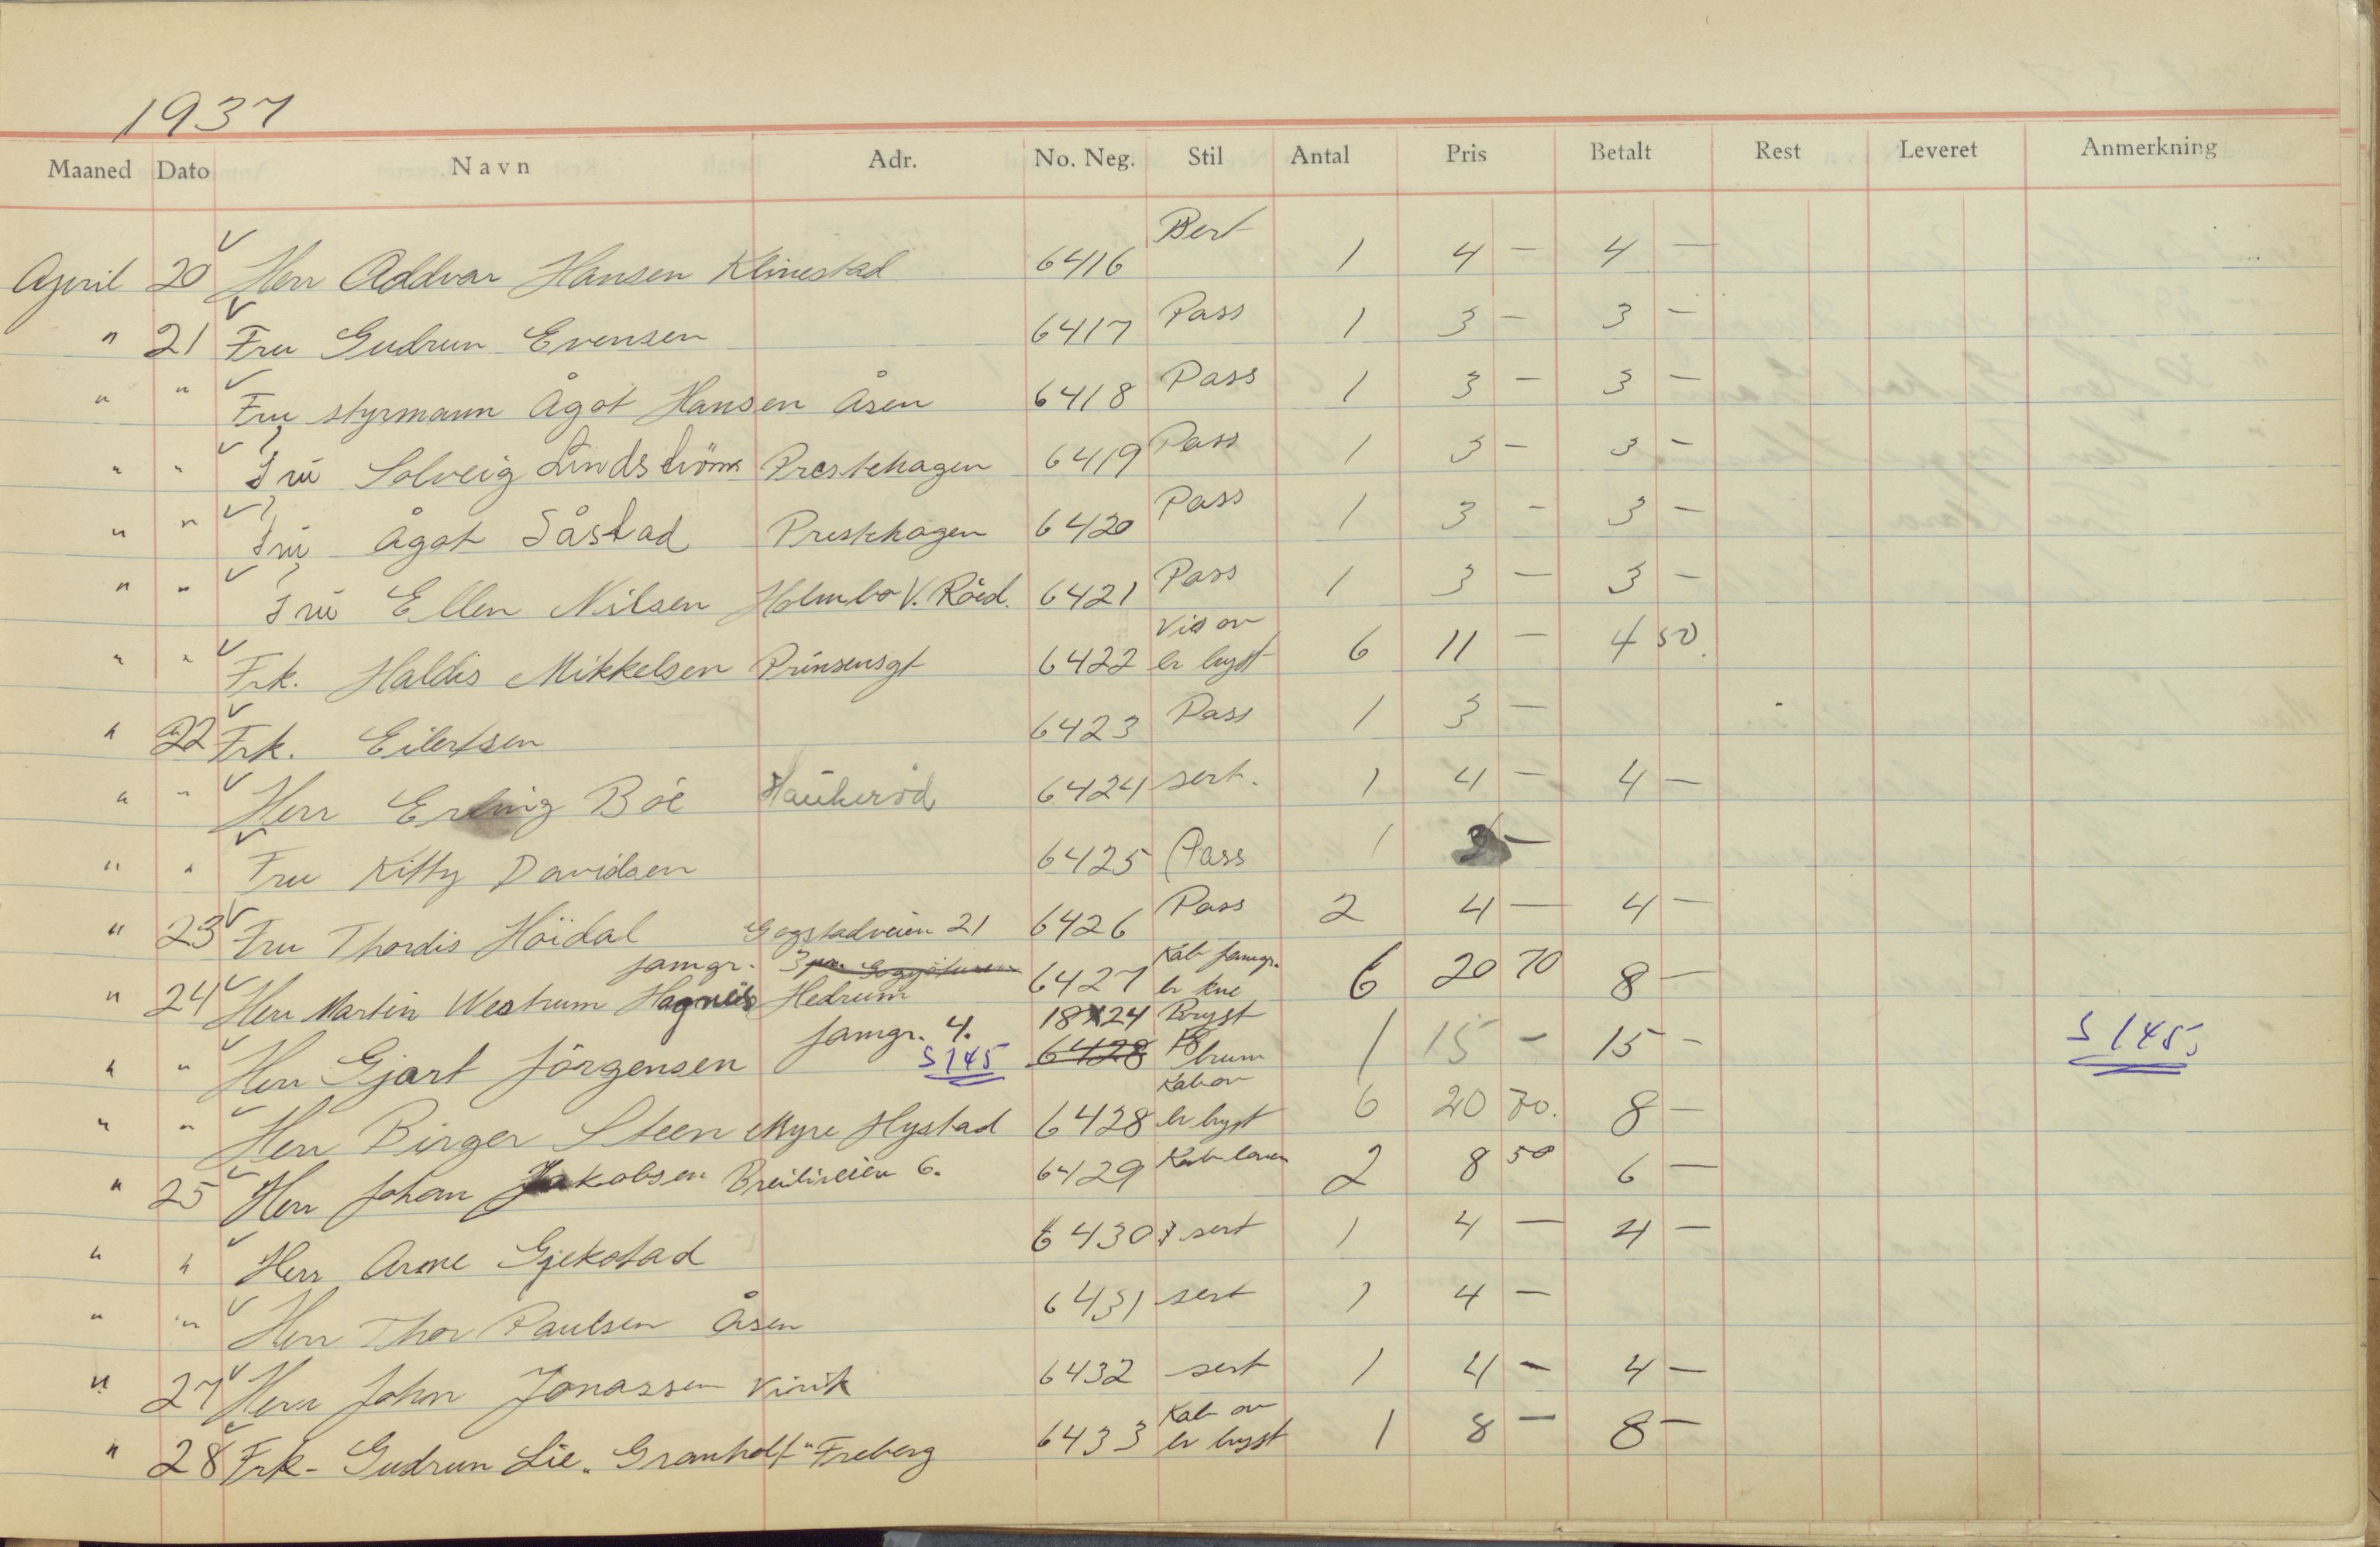 1937
Maaned Dato Navn Adr. No. Neg. Stil Antal Pris Betalt Rest Leveret Anmerkning
April 20 Herr Oddvar Hansen Klinestad 6416 Bert 1 4 — 4 —
" 21 Fru Gudrun Evensen 6417 Pass 1 3 — 3 —
" " Fru styrmann Ågot Hansen Åsen 6418 Pass 1 3 — 3 —
" " Fru Solveig Lindstrøm Prestehagen 6419 Pass 1 3 — 3 —
" " Fru Ågot Såstad Prestehagen 6420 Pass 1 3 — 3 —
" " Fru Ellen Nilsen Holmbo V. Röed. 6421 Pass 1 3 — 3 —
" " Frk. Haldis Mikkelsen Prinsensgt 6422 Vis ov er bryst 6 11 — 4 50.
" 22 Frk. Eilertsen 6423 Pass 1 3 —
" " Herr Erling Böe Haukeröd 6424 sert. 1 4 — 4 —
" " Fru Kitty Davidsen 6425 Pass 1 3 —
" 23 Fru Thordis Höidal Gogstadveien 21 6426 Pass 2 4 — 4 —
" 24 Herr Martin Westrum Hagnes famgr. 3 Hedrum 6427 Kab famgr. er kne 6 20 70 8 —
" " Herr Gjart Jörgensen famgr. 4. S145 18x24 6428 Bryst brum 1 15 — 15 — S 145
" " Herr Birger Steen Myre Hystad 6428 Kab ov er bryst 6 20 70. 8 —
" 25 Herr Johan Jakobsen Breiliveien 6. 6429 Kab 2 8 50 6 —
" " Herr Arne Gjekstad 6430 sert 1 4 — 4 —
" " Herr Thor Paulsen Åsen 6431 sert 1 4 —
" 27 Herr John Jonassen Virik 6432 sert 1 4 — 4 —
" 28 Frk. Gudrun Lie "Granholt" Freberg 6433 Kab ov er bryst 1 8 — 8 —